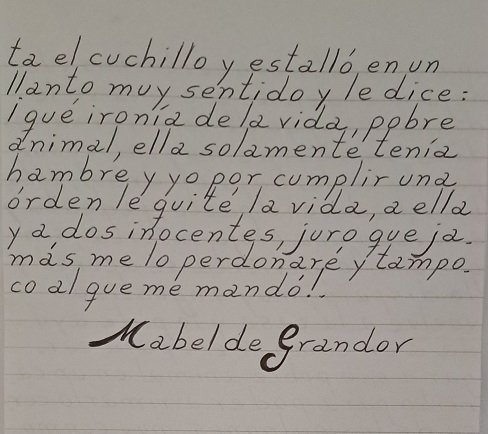 ta el cuchillo y estalló en un
llanto muy sentido y le dice:
¡qué ironía de la vida, pobre
animal, ella solamente tenía
hambre y yo por cumplir una
órden le quité la vida, a ella
y a dos inocentes, juro que ja-
más me lo perdonaré y tampo-
co al que me mandó!.
Mabel de Grandor